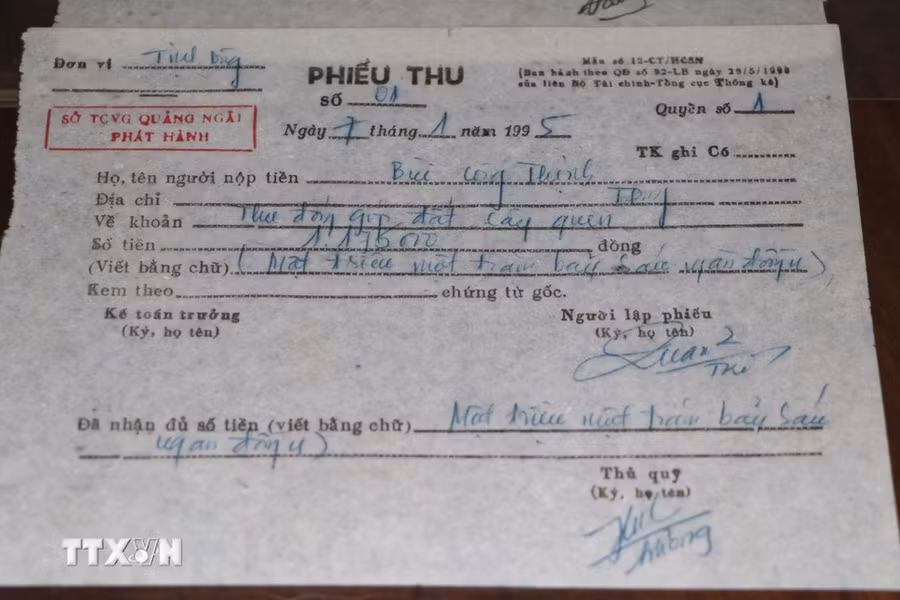 Đơn vị Tịnh Đông
PHIẾU THU
Mẫu số 12-CT/HCSN
(Ban hành theo QĐ số 92-LB ngày 29/5/1990
của liên Bộ Tài chính-Tổng cục Thống kê)
SỞ TCVG QUẢNG NGÃI
PHÁT HÀNH
Số 01
Quyển số 1
Ngày 7 tháng 1 năm 1995
TK ghi Có
Họ, tên người nộp tiền Bùi Công Thịnh
Địa chỉ
Về khoản Thu đóng góp đất cây quen
Số tiền 1176000 đồng
(Viết bằng chữ) (Một triệu một trăm bảy sáu ngàn đồng)
Kem theo chứng từ gốc.
Kế toán trưởng
Người lập phiếu
(Ký, họ tên)
(Ký, họ tên)
Đã nhận đủ số tiền (viết bằng chữ) Một triệu một trăm bảy sáu
ngàn đồng)
Thủ quỹ
(Ký, họ tên)
TTXVN